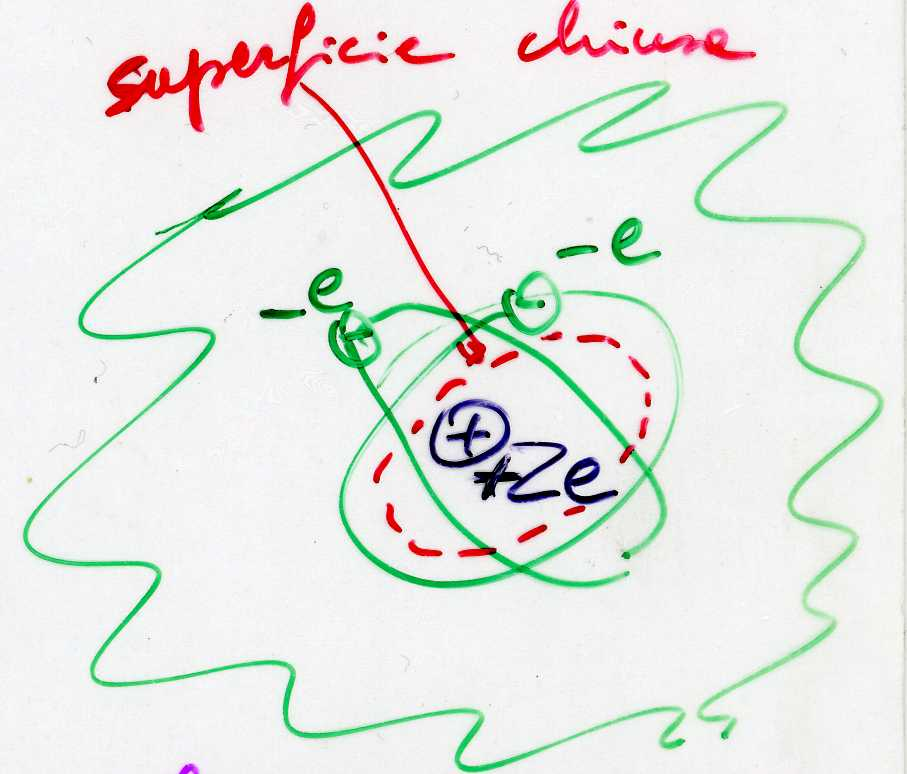 superficie chiusa
-e
-e
+
+Ze